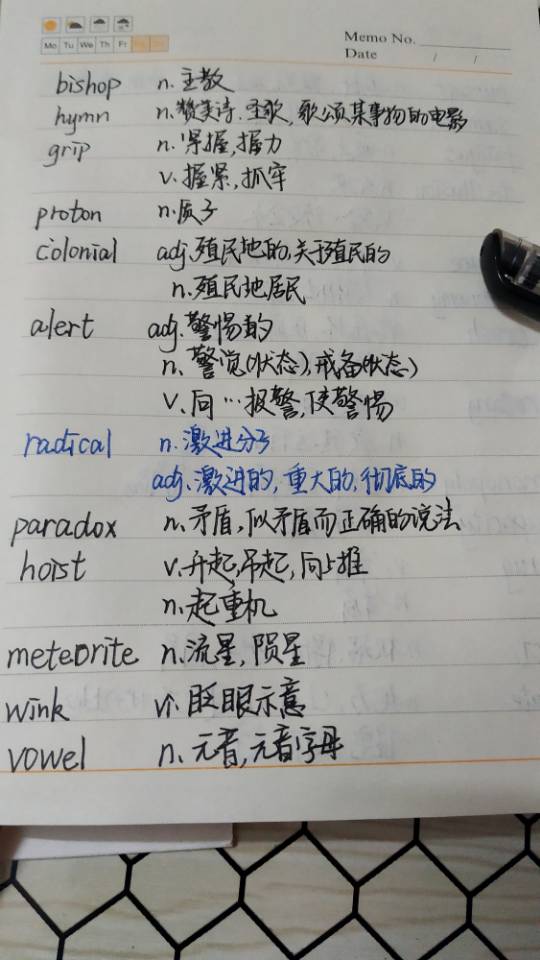 Memo No.
Mo Tu We Th Fr
Date / /
bishop n. 主教
hymn n. 赞美诗, 圣歌, 歌颂某事物的电影
grip n. 紧握, 握力
v. 握紧, 抓牢
proton n. 质子
colonial adj. 殖民地的, 关于殖民的
n. 殖民地居民
alert adj. 警惕的
n. 警觉(状态), 戒备(状态)
v. 向…报警, 使警惕
radical n. 激进分子
adj. 激进的, 重大的, 彻底的
paradox n. 矛盾, 似矛盾而正确的说法
hoist v. 升起, 吊起, 向上推
n. 起重机
meteorite n. 流星, 陨星
wink vi. 眨眼示意
vowel n. 元音, 元音字母